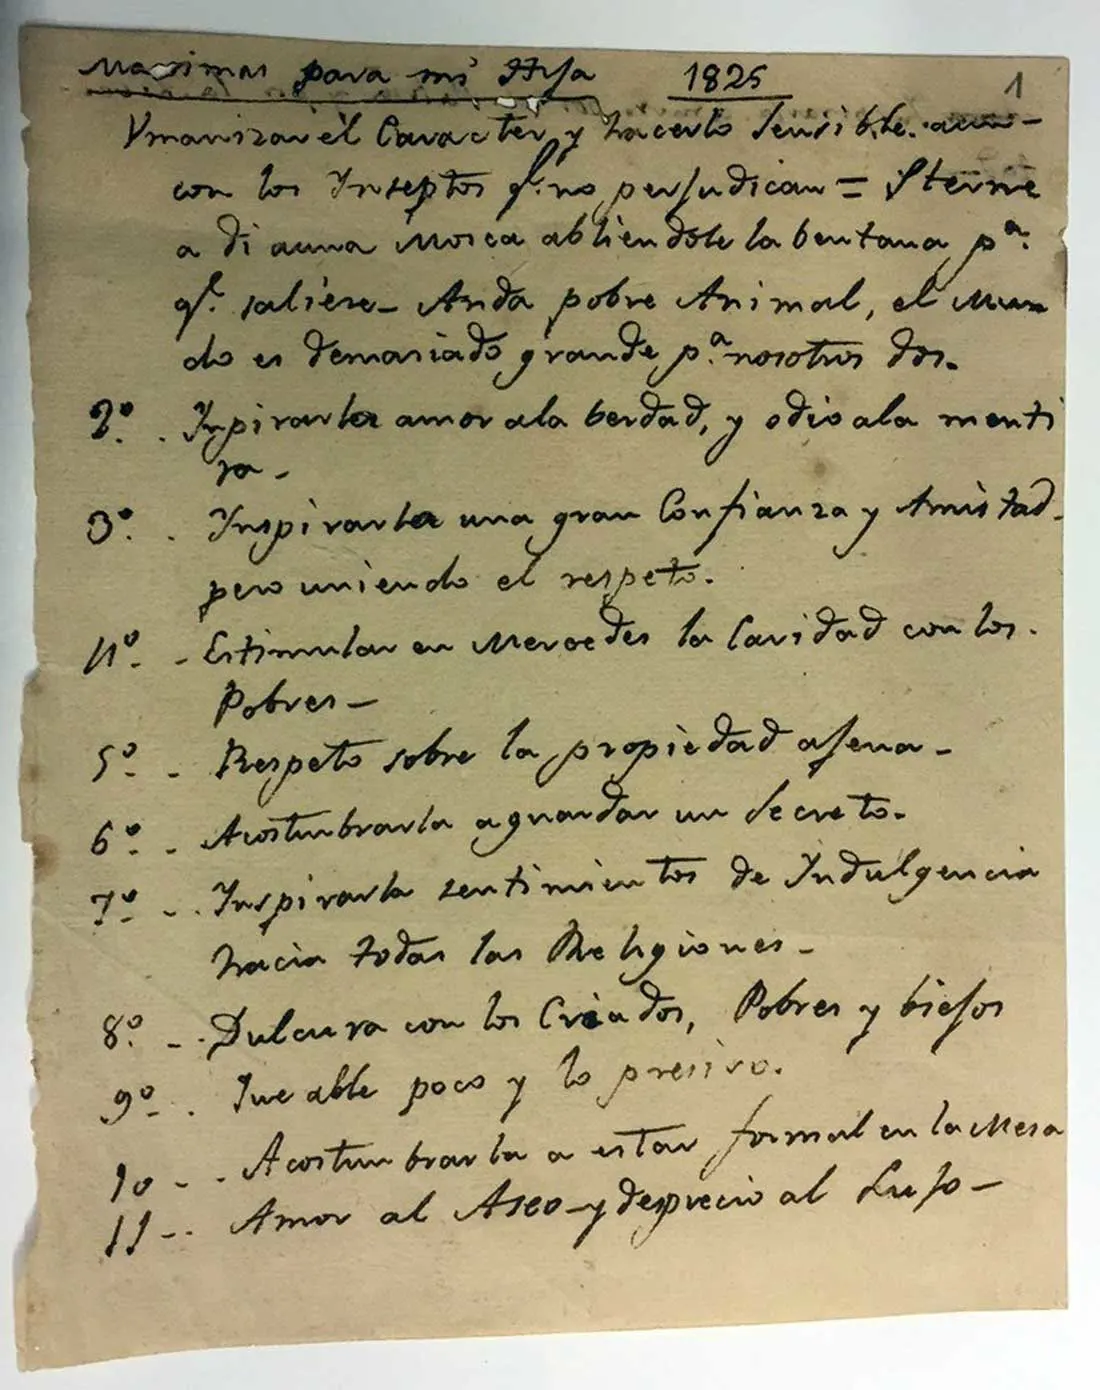 Maximas para mi Hija 1825 1
Vmanizar él Caracter y hacerlo sensible. aun-
con los Inseptos q.e no perjudican = Sterne
a di auna Mosca abliendole la bentana p.a
q.e saliese- Anda pobre Animal, el Mun
do es demasiado grande p.a nosotros dos.
2º. . Inpirarla amor ala berdad, y odio ala menti
ra-
3º. . Inspirarla una gran Confianza y Amistad-
pero uniendo el respeto.
4º. - Estimular en Mercedes la Caridad con los.
Pobres-
5º. . Respeto sobre la propiedad ajena-
6º. . Acostumbrarla a guardar un Secreto.
7º. . Inspirarla sentimientos de Indulgencia
hacia todas las Religiones-
8º. - Dulcura con los Criados, Pobres y biejos
9º. . Que able poco y lo presiso.
10 - . Acostumbrarla a estar formal en la Mesa
11 - . Amor al Aseo y desprecio al Lujo-